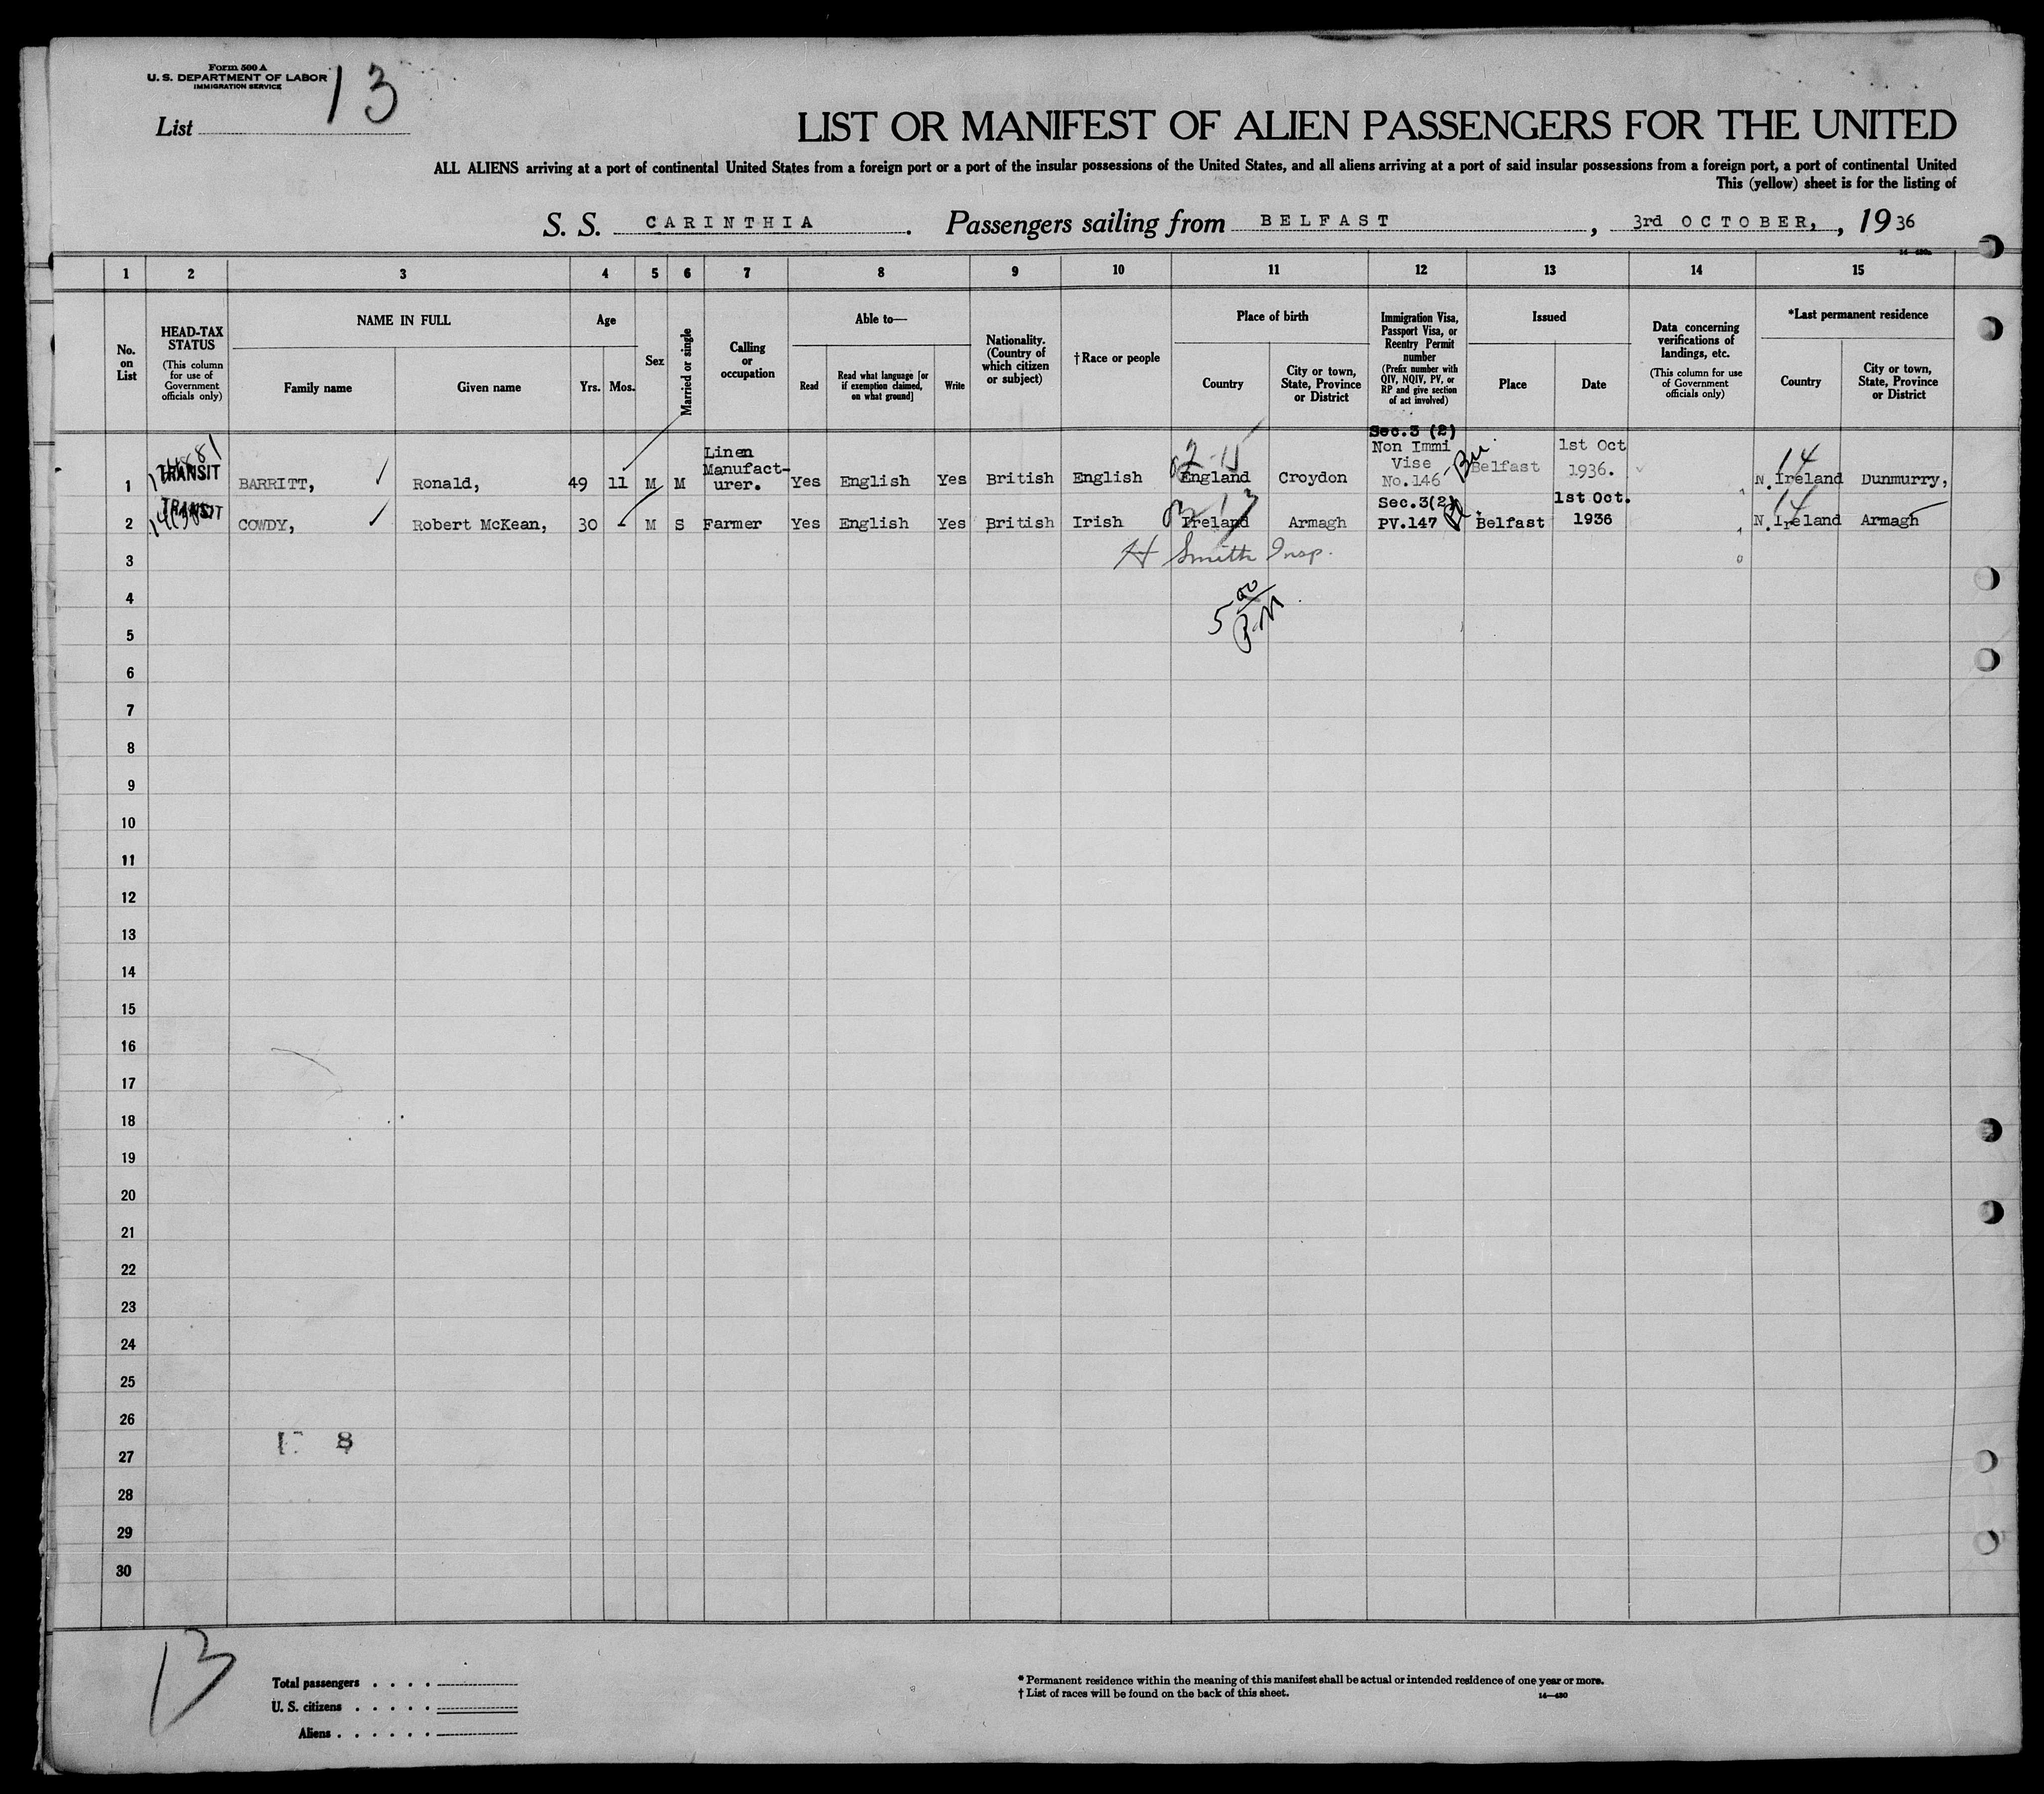 Form 500 A
U. S. DEPARTMENT OF LABOR
IMMIGRATION SERVICE
List 13
LIST OR MANIFEST OF ALIEN PASSENGERS FOR THE UNITED
ALL ALIENS arriving at a port of continental United States from a foreign port or a port of the insular possessions of the United States, and all aliens arriving at a port of said insular possessions from a foreign port, a port of continental United
This (yellow) sheet is for the listing of
S. S. CARINTHIA . Passengers sailing from BELFAST , 3rd OCTOBER, , 1936
1 2 3 4 5 6 7 8 9 10 11 12 13 14 15
No. on List
HEAD-TAX STATUS
(This column for use of Government officials only)
NAME IN FULL
Family name Given name
Age
Yrs. Mos.
Sex
Married or single
Calling or occupation
Able to—
Read
Read what language [or if exemption claimed, on what ground]
Write
Nationality. (Country of which citizen or subject)
†Race or people
Place of birth
Country
City or town, State, Province or District
Immigration Visa, Passport Visa, or Reentry Permit number
(Prefix number with QIV, NQIV, PV, or RP and give section of act involved)
Issued
Place Date
Data concerning verifications of landings, etc.
(This column for use of Government officials only)
*Last permanent residence
Country
City or town, State, Province or District
1 TRANSIT BARRITT, Ronald, 49 11 M M Linen Manufact-urer. Yes English Yes British English England Croydon Sec.3 (2) Non Immi Vise No.146 Belfast 1st Oct 1936. 14 N.Ireland Dunmurry,
2 TRANSIT COWDY, Robert McKean, 30 - M S Farmer Yes English Yes British Irish Ireland Armagh Sec.3(2) PV.147 Belfast 1st Oct. 1936 14 N.Ireland Armagh
3 H Smith Insp.
4 5 00
5 P.M
6
7
8
9
10
11
12
13
14
15
16
17
18
19
20
21
22
23
24
25
26
27
28
29
30
13
Total passengers . . . .
U. S. citizens . . . . .
Aliens . . . . . .
* Permanent residence within the meaning of this manifest shall be actual or intended residence of one year or more.
† List of races will be found on the back of this sheet.
14—430